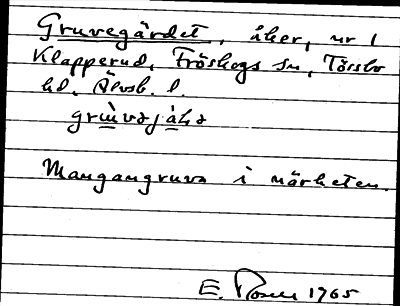 Gruvegärdet, åker, nr 1
Klapperud, Fröskogs sn, Tössbo
hd. Älvsb. l.
Mangangruva i närheten.
E. 1965